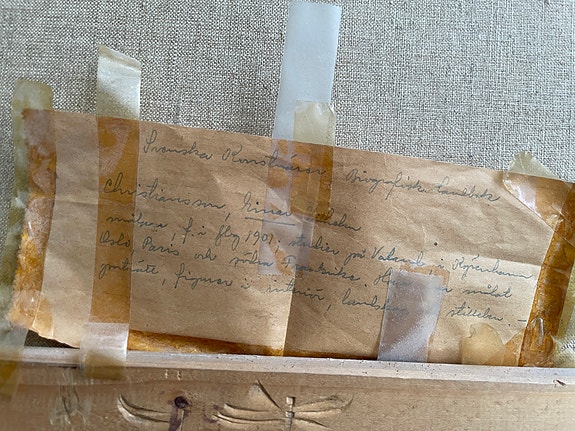 Svenska Konstnärer Biografiska handbok
Christianson, Einar
målare, f. i Sbg 1901; studier på Valand, i Köpenhamn
Oslo, Paris och södra Frankrike. Har målat
porträtt, figurer i interiör, landskap stilleben. —